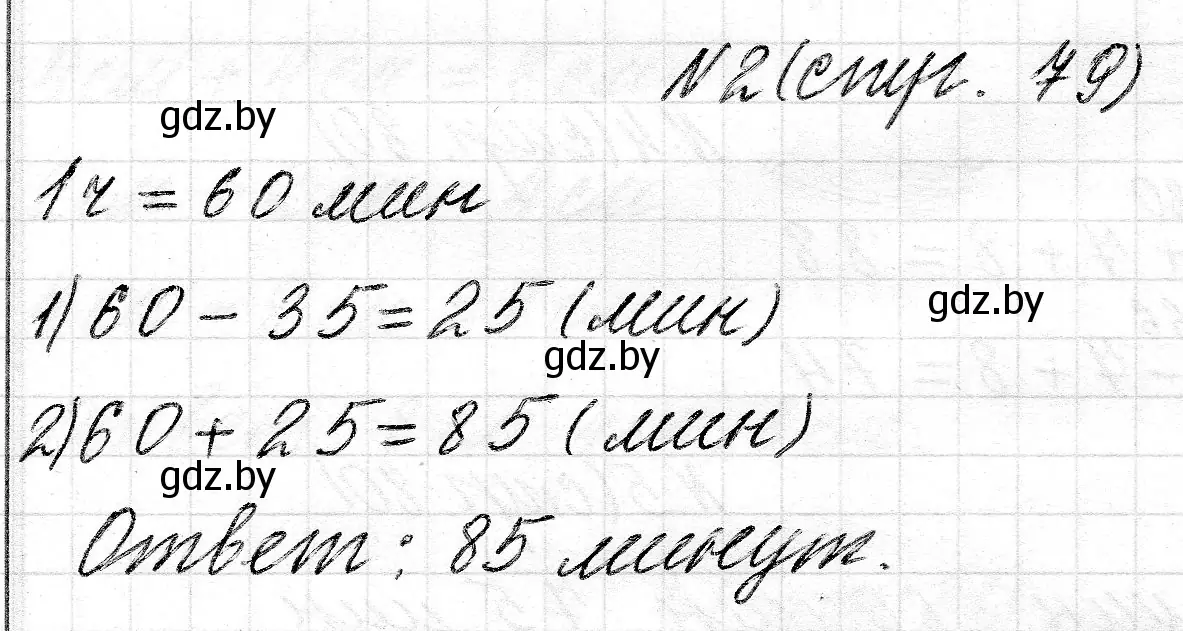 N2 (стр. 79)
gdz.by
1ч = 60 мин
1) 60 - 35 = 25 (мин)
gdz.by
gdz.by
2) 60 + 25 = 85 (мин)
gdz.by
Ответ: 85 минут.